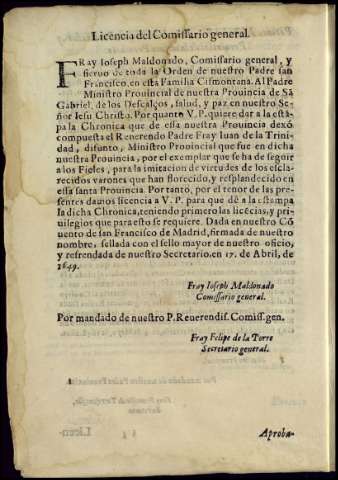 Licencia del Comissario general.
FRay Ioseph Maldonado, Comissario general, y
sieruo de toda la Orden de nuestro Padre san
Francisco, en esta Familia Cismontana. Al Padre
Ministro Prouincial de nuestra Prouincia de Sā
Gabriel, de los Descalços, salud, y paz en nuestro Se-
ñor Iesu Christo. Por quanto V.P. quiere dar a la estā-
pala Chronica que de essa nuestra Prouincia dexó
compuesta el Reuerendo Padre Fray Iuan de la Trini-
dad, difunto, Ministro Prouincial que fue en dicha
nuestra Prouincia, por el exemplar que se ha de seguir
a los Fieles, para la imitacion de virtudes de los escla-
recidos varones que han florecido, y resplandecido en
essa santa Prouincia. Por tanto, por el tenor de las pre-
sentes damos licencia a V. P. para que dè a la estampa
la dicha Chronica, teniendo primero las licēcias, y pri-
uilegios que para esto se requiere. Dada en nuestro Cō
uento de san Francisco de Madrid, firmada de nuestro
nombre, sellada con el sello mayor de nuestro oficio,
y refrendada de nuestro Secretario. en 17. de Abril, de
1649.
Fray Ioseph Maldonado
Comissario general.
Por mandado de nuestro P. Reuerendis. Comiss. gen.
Fray Felipe de la Torre
Secretario general.
Aproba-